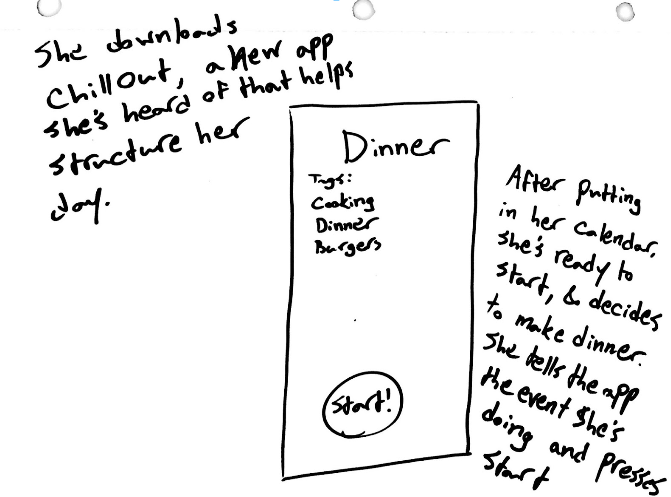 She downloads
ChillOut, a new app
she's heard of that helps
structure her
day.
Dinner
Tags:
Cooking
Dinner
Burgers
Start!
After putting
in her calendar,
she's ready to
start, & decides
to make dinner.
She tells the app
the event she's
doing and presses
start